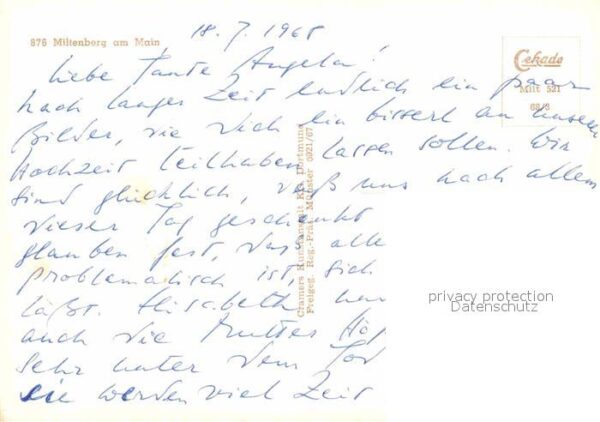 18.7.1968
878 Miltenberg am Main
Cekade
Milt 521
68/8
Liebe Tante Angela!
nach langer Zeit endlich ein paar
Bilder, die Dich ein bisserl an unserer
Hochzeit teilhaben lassen sollen. Wir
sind glücklich, daß uns nach allem
dieser Tag geschenkt
glauben fest, daß alle
problematisch ist, sich
läßt. Elisabeth
auch die Mutter
sehr unter dem Tod
sie werden viel Zeit
Cramers Kunstanstalt KG. Dortmund
Freigeg. Reg.-Präs. Münster 0821/67
privacy protection
Datenschutz